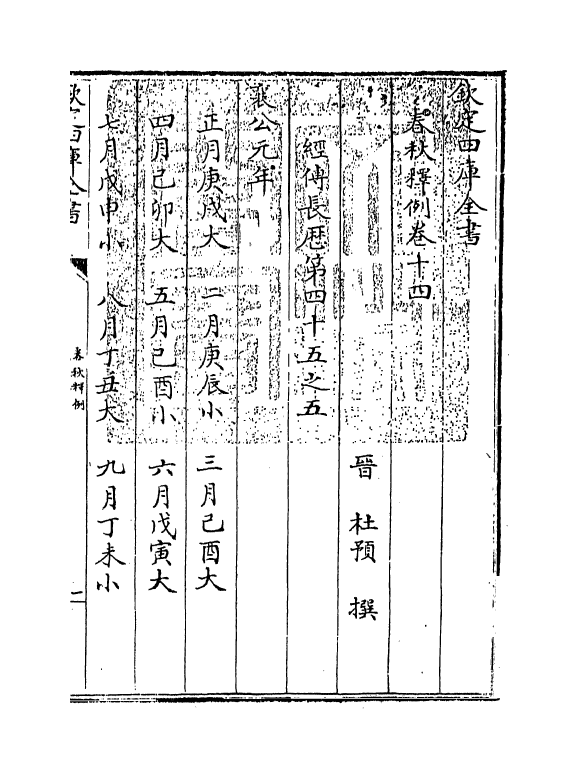 欽定四庫全書
春秋釋例卷十四
晉 杜預 撰
經傳長厯第四十五之五
襄公元年
正月庚戌大 二月庚辰小 三月己酉大
四月己卯大 五月己酉小 六月戊寅大
七月戊申小 八月丁丑大 九月丁未小
欽定四庫全書
春秋釋例